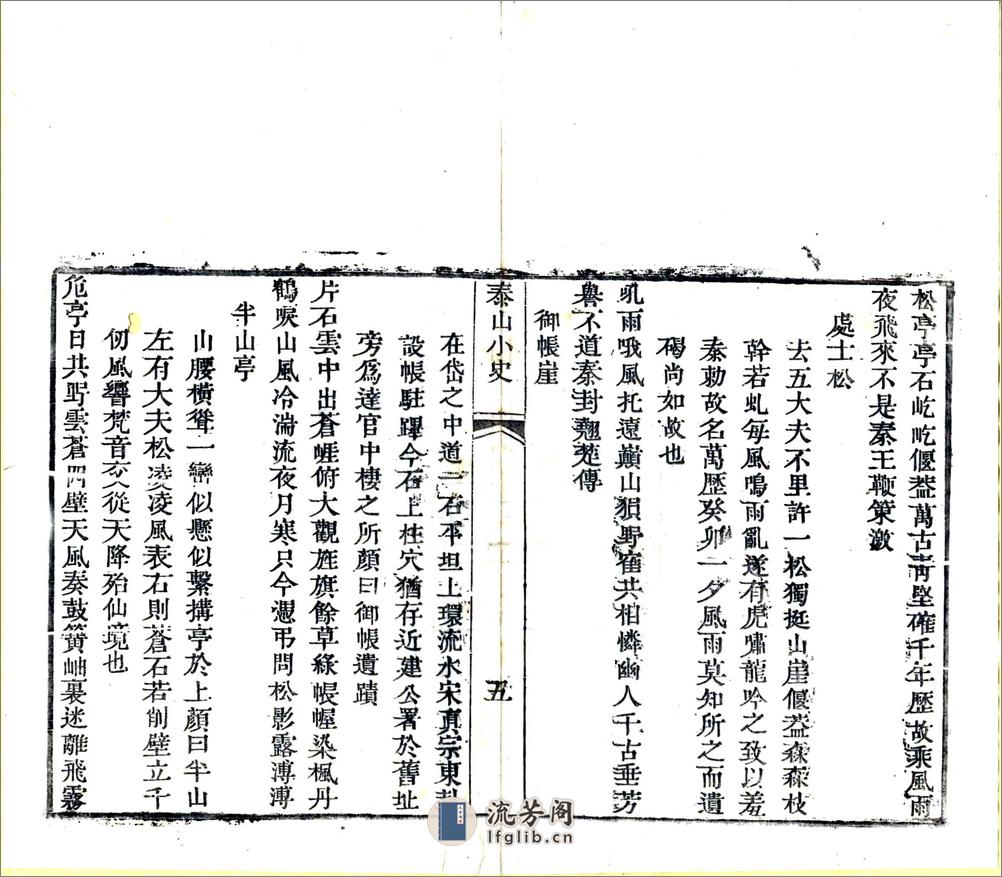 松亭亭石屹屹偃葢萬古靑堅確千年歷故乘風雨
夜飛來不是秦王鞭策激
處士松
去五大夫不里許一松獨挺山崖偃葢森森枝
幹若虬每風鳴雨亂遂有虎嘯龍吟之致以羞
秦勅故名萬歷癸卯一夕風雨莫知所之而遺
碣尚如故也
吼雨哦風托遠巓山狽野寉共相憐幽人千古垂芳
譽不道秦封翹楚傳
泰山小史
五
御帳崖
在岱之中道一石平坦上環流水宋真宗東封
設帳駐蹕今石上柱穴猶存近建公署於舊址
旁爲達官中棲之所顏曰御帳遺蹟
片石雲中出蒼崕俯大觀旌旗餘草綠帳幄染楓丹
鶴唳山風冷湍流夜月寒只今憑弔問松影露溥溥
半山亭
山腰橫聳一巒似懸似繫搆亭於上顏曰半山
左有大夫松凌凌風表右則蒼石若削壁立千
仞風響梵音交從天降殆仙境也
危亭日共野雲蒼門壁天風奏鼓簧岫裏迷離飛霧
流芳阁
lfglib.cn